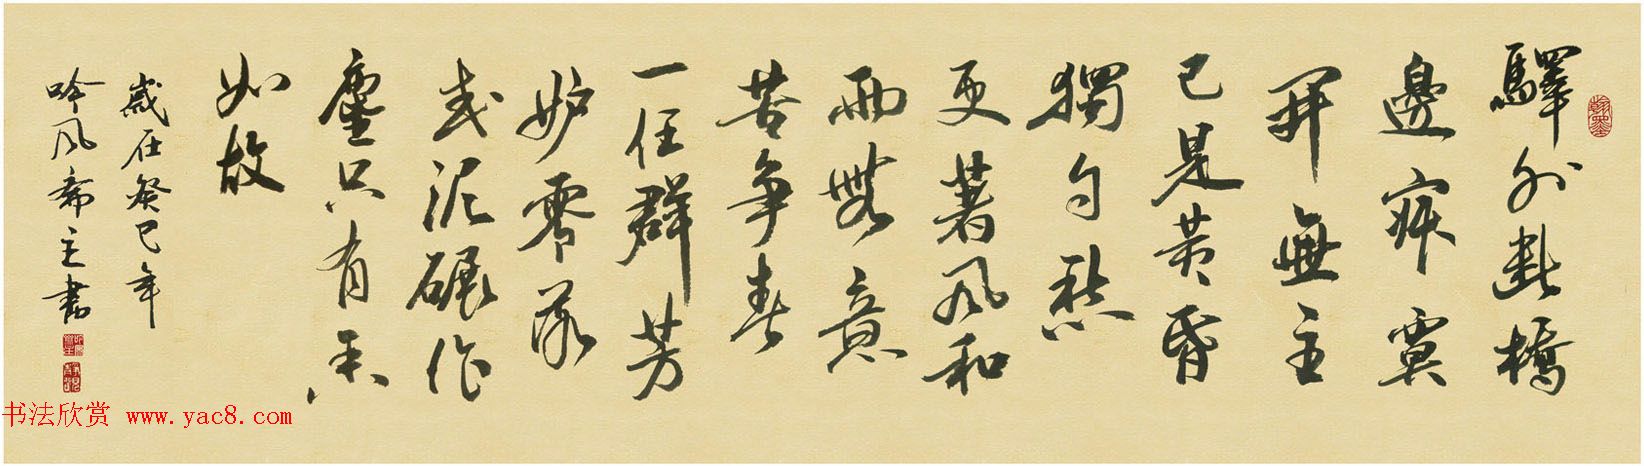 翰墨
驛外斷橋
邊寂寞
開無主
已是黃昏
獨自愁
更著風和
雨無意
苦爭春
一任群芳
妒零落
成泥碾作
塵只有香
如故
歲在癸巳年
吟風齋主書
书法欣赏 www.yac8.com